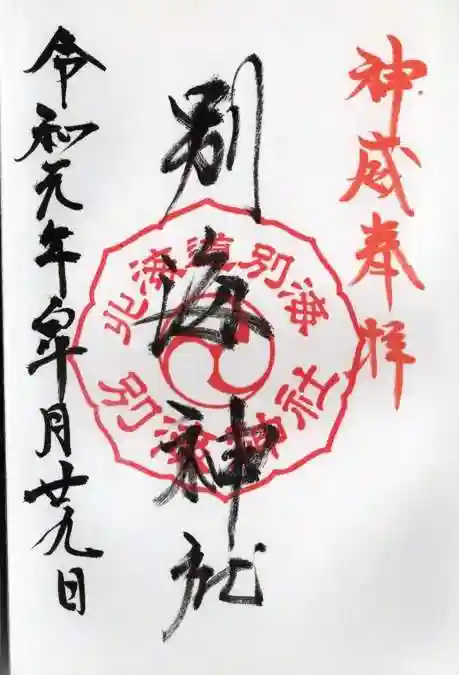 神威奉拝
別海神社
北海道別海
別海神社
令和元年皐月廿九日